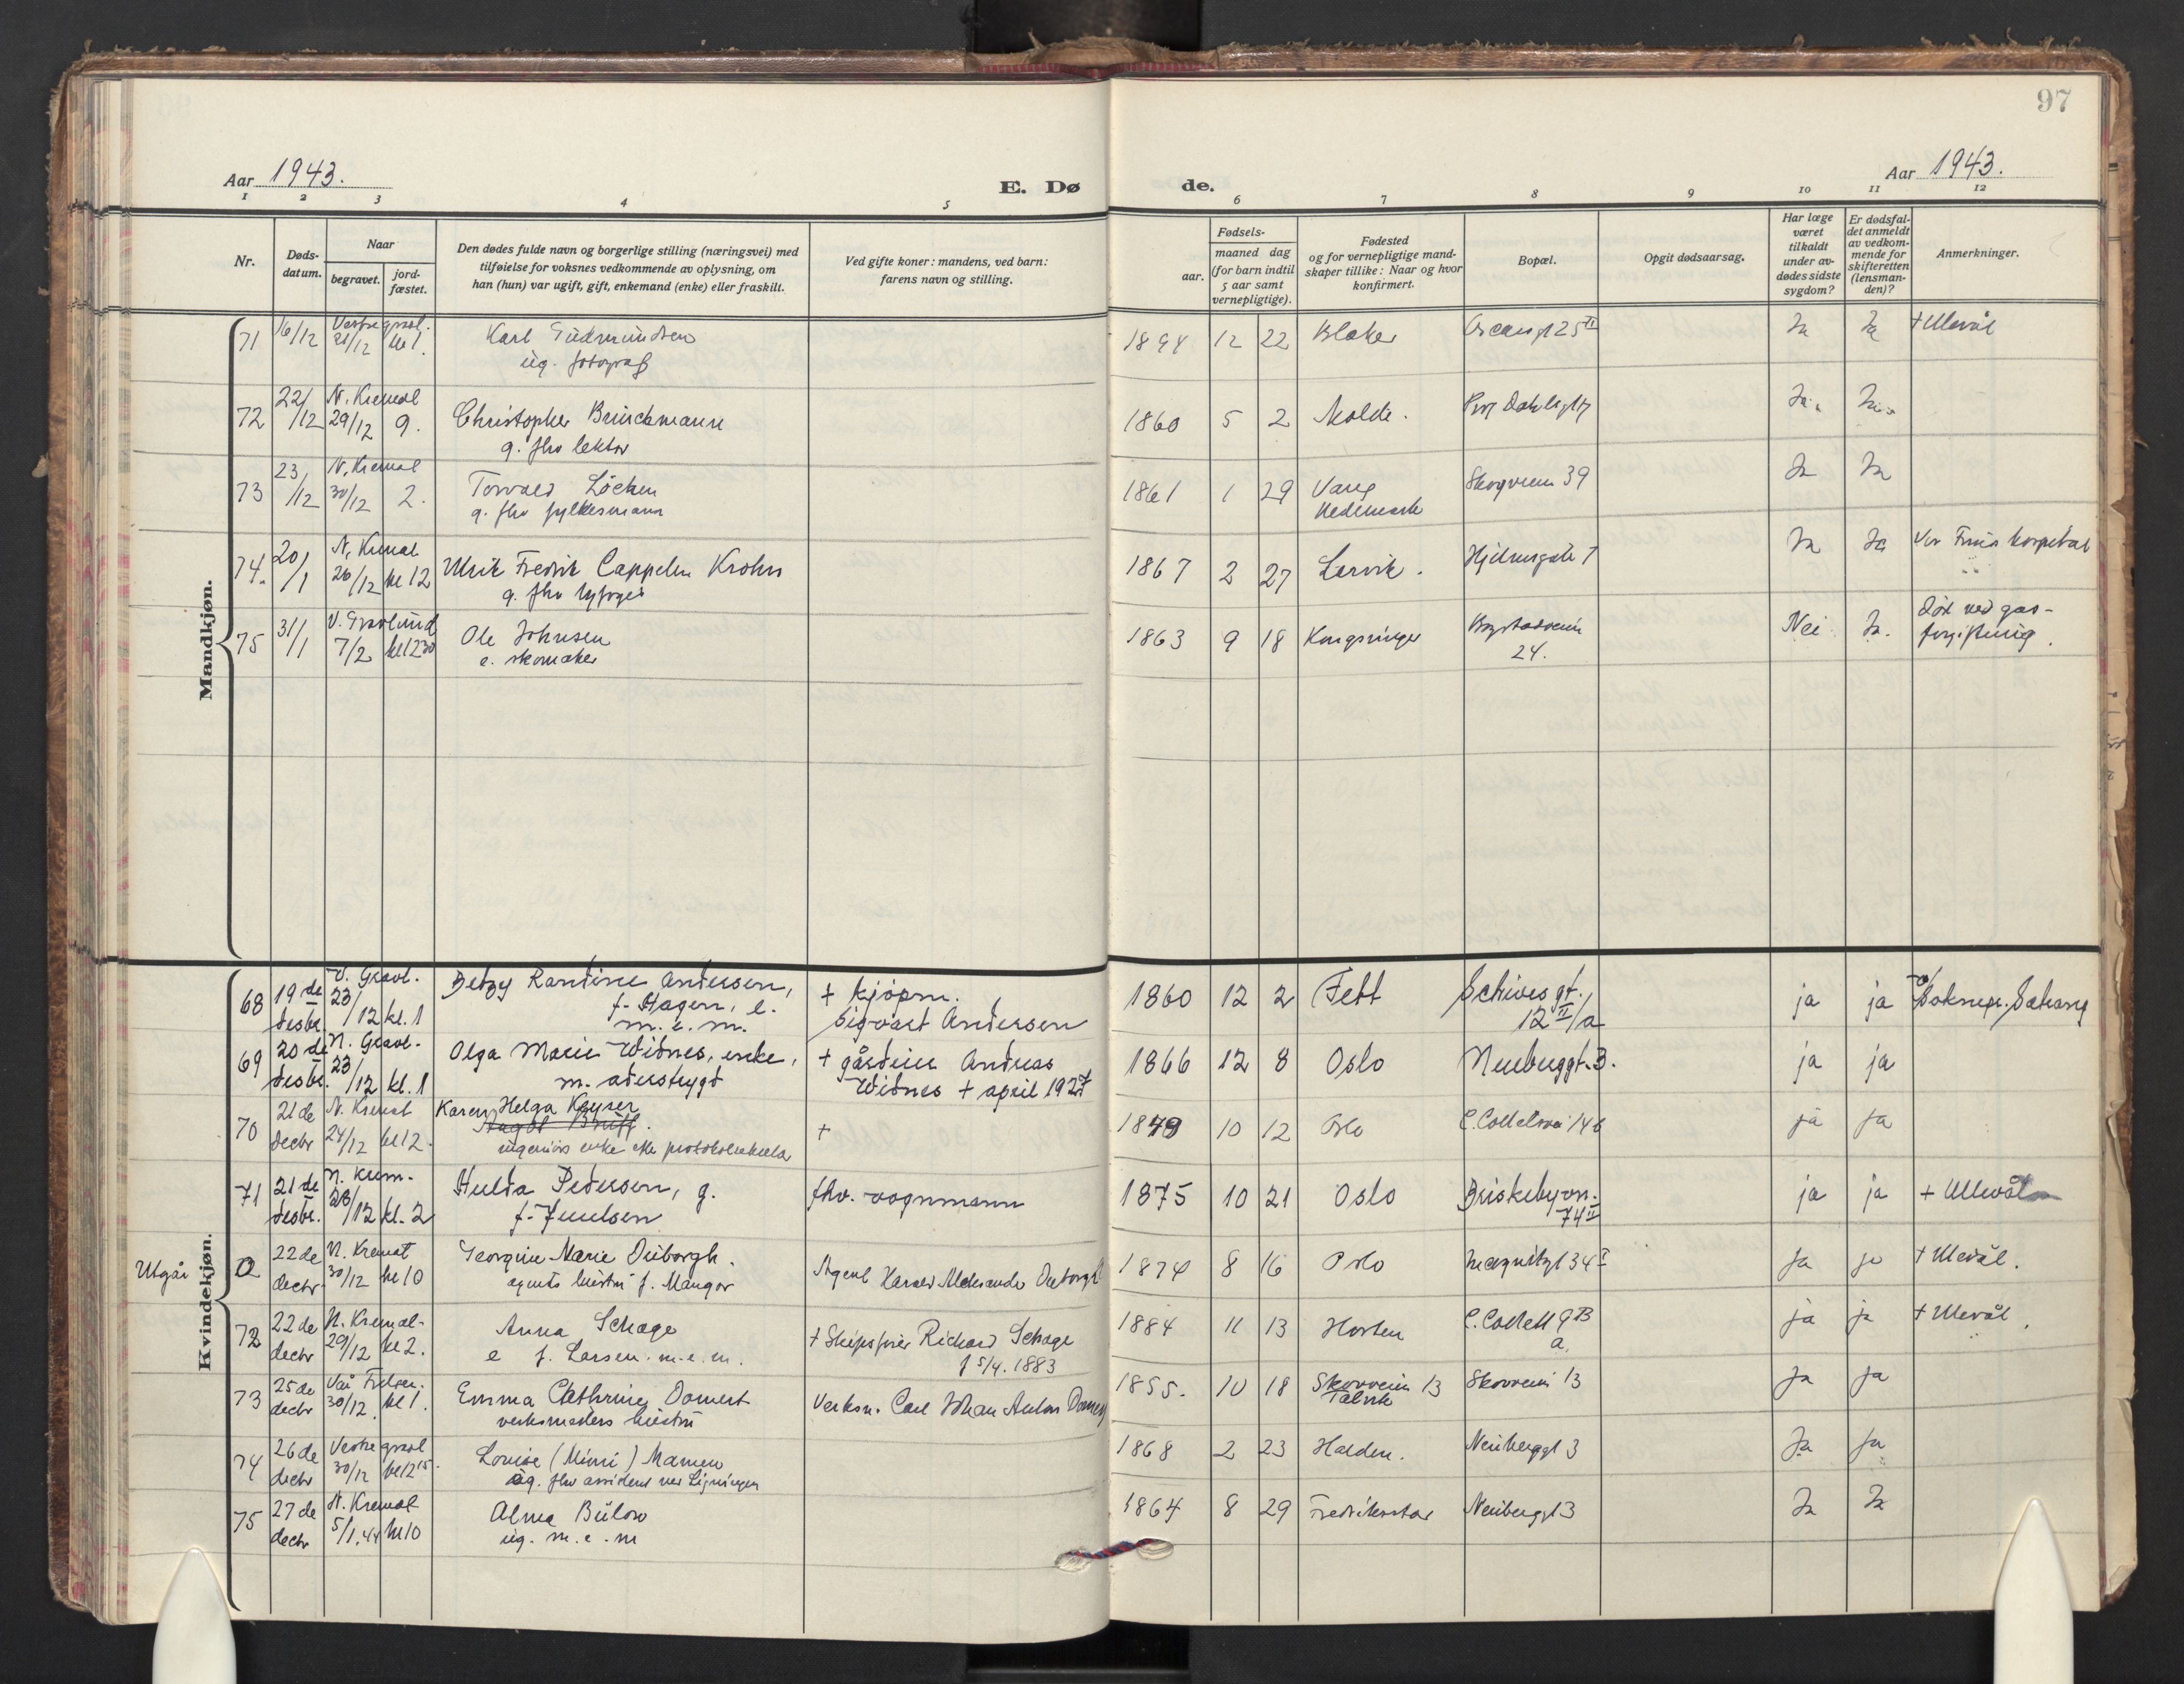 97
Aar 1943.
E. Dø de.
Aar 1943.
1 2 3 4 5 6 7 8 9 10 11 12
Nr.
Døds-
datum.
Naar
begravet.
jord-
fæstet.
Den dødes fulde navn og borgerlige stilling (næringsvei) med
tilføielse for voksnes vedkommende av oplysning, om
han (hun) var ugift, gift, enkemand (enke) eller fraskilt.
Ved gifte koner: mandens, ved barn:
farens navn og stilling.
Fødsels-
aar.
maaned dag
(for barn indtil
5 aar samt
vernepligtige).
Fødested
og for vernepligtige mand-
skaper tillike: Naar og hvor
konfirmert.
Bopæl.
Opgit dødsaarsag.
Har læge
været
tilkaldt
under av-
dødes sidste
sygdom?
Er dødsfal-
det anmeldt
av vedkom-
mende for
skifteretten
(lensman-
den)?
Anmerkninger.
Mandkjøn.
71 16/12 Vestre gravl. 21/12 kl 1. Karl Gudmundsen 1894 12 22 Blaker Oscarsgt 25 II Ja Ja + Ullevål
ug. fotograf
72 22/12 N. Kremat 29/12 9. Christopher Brinchmann 1860 5 2 Molde. Prof Dahlsgt 17 Ja. Ja.
g. fhv lektor
73 23/12 N. Kremat 30/12 2. Torvald Løchen 1861 1 29 Vang Skogveien 39 Ja Ja
g. fhv fylkesmann Hedemark
74. 20/1 N. Kremat 26/12 kl 12 Ulrik Fredrik Cappelen Krohn 1867 2 27 Larvik. 7 Ja Ja Vor Frues hospital
g. fhv byfoged
75 31/1 V. Gravlund 7/2 kl 12 30 Ole Johnsen 1863 9 18 Kongsvinger Nei Ja. død ved gas-
e. skomaker 24. forgiftning.
Kvindekjøn.
68 19 de desbr. V. Gravl. 23/12 kl. 1 Betzy Randine Andersen, + kjøpm. 1860 12 2 Fett Schives gt. ja ja
f. Hagen, e. Sigvart Andersen 12 II/a
m. e. m.
69 20 de desbr. N. Gravl. 23/12 kl. 1 Olga Marie Widnes, enke, + gårdeier Andreas 1866 12 8 Oslo Neuberggt. 3. ja ja
m. alderstrygd Widnes + april 1927
70 21 de decbr N. Kremat 24/12 kl 12. Karen Helga Keyser + 1879 10 12 Oslo C. Colletsvei 14 b ja ja
ingeniørs enke
71 21 de desbr. N. Krem. 28/12 kl. 2 Hulda Pedersen, g. fhv. vognmann 1875 10 21 Oslo Briskebyvn. ja ja + Ullevål
f. Juulsen 74 II
Utgår 0 22 de decbr N. Kremat 30/12 kl 10 Georgine Marie Duborgh. Agent Harald Aleksander Duborgh 1874 8 16 Oslo 34 I Ja ja + Ullevål.
agents hustru f. Mangor
72 22 de decbr N. Kremat. 29/12 kl 2. Anna Schage + Skipsfører Richard Schage 1884 11 13 Horten C. Collett 9 B ja ja + Ullevål.
e f. Larsen. m. e. m. f 5/4. 1883 a.
73 25 de decbr Vår Frelser. 30/12. kl 1. Emma Cathrine Domert Verksm. Carl Johan Anton 1855. 10 18 Skovveien 13 Skovveien 13 Ja ja
verksmesters hustru Talvik
74 26 de decbr Vestre gravl 30/12 kl 12 15. Louise (Mimi) Mamen 1868 2 23 Halden. Neuberggt 3 Ja ja
ug. fhv assistent ved Ligningen
75 27 de decbr N. Kremat 5/1. 44 kl 10 Alma Bülow 1864 8 29 Fredrikstad Neuberggt 3 Ja Ja
ug. m. e. m